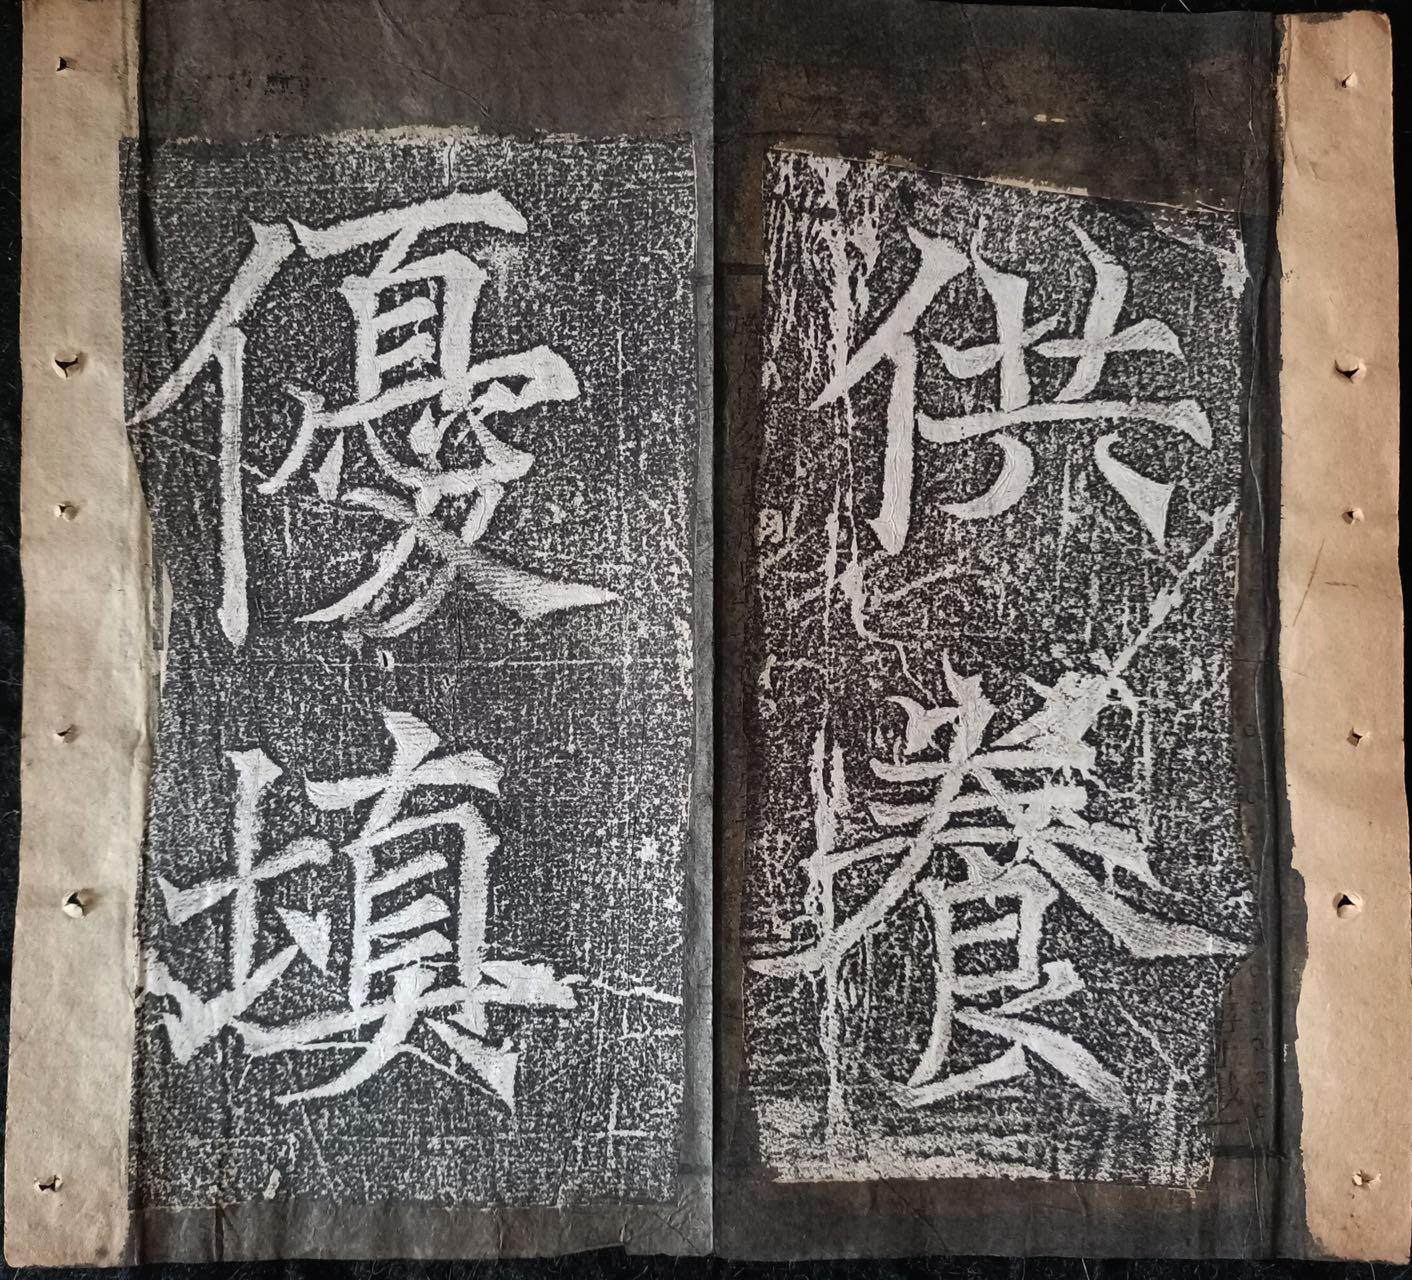 供養
優填